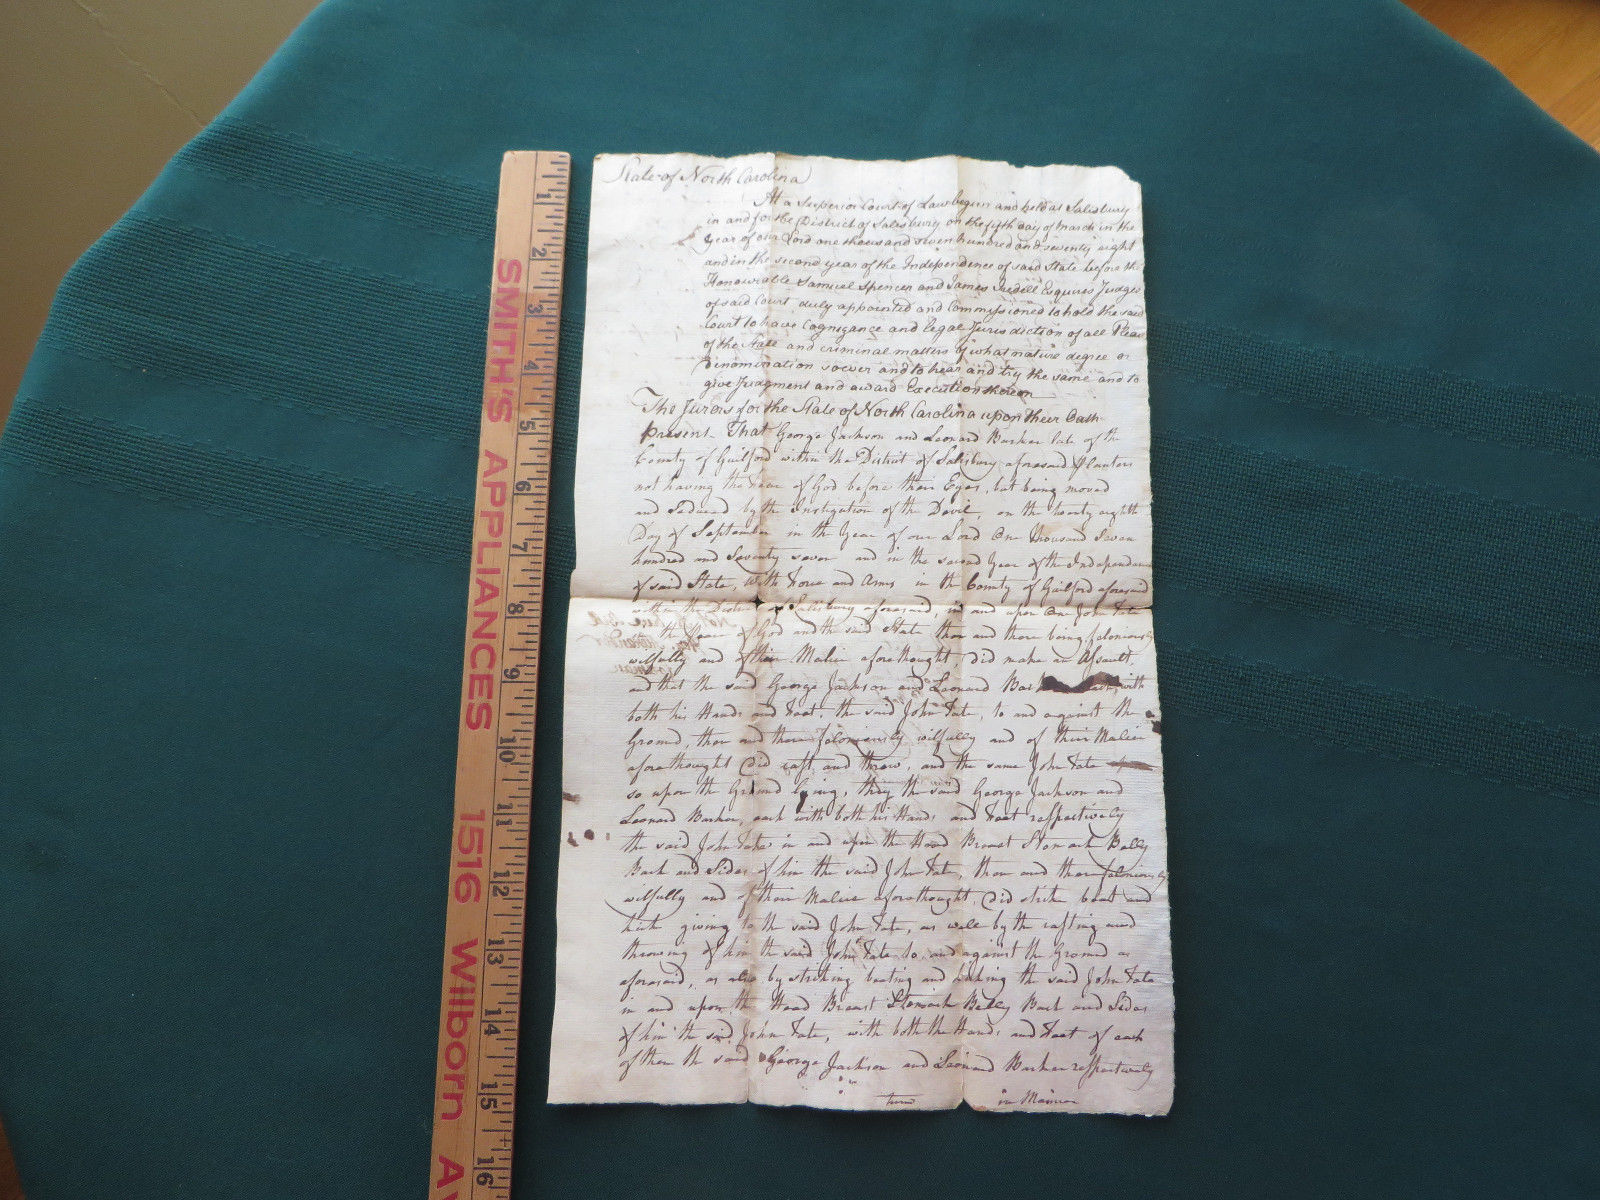 State of North Carolina
At a Superior Court of Law begun and held at Salisbury
in and for the District of Salisbury on the fifth day of March in the
Year of our Lord one thousand seven hundred and seventy eight
and in the second year of the Independence of said State before the
Honourable Samuel Spencer and James Iredell Esquires Judges
of said Court duly appointed and Commissioned to hold the said
Court to have Cognizance and legal Jurisdiction of all Pleas
of the State and criminal matters of what nature degree or
Denomination soever and to hear and try the same and to
give Judgment and award Execution thereon
The Jurors for the State of North Carolina upon their Oath
present That George Jackson and Leonard Barker late of the
County of Guilford within the District of Salisbury aforesaid Planters
not having the Fear of God before their Eyes, but being moved
and seduced by the Instigation of the Devil, on the twenty eighth
Day of September in the Year of our Lord One thousand Seven
hundred and Seventy seven and in the second Year of the Independence
of said State, With Force and Arms in the County of Guilford aforesaid
within the District of Salisbury aforesaid, in and upon One John Tate
in the Peace of God and the said State then and there being feloniously
wilfully and of their Malice aforethought, did make an Assault,
and that the said George Jackson and Leonard Barker each, with
both his Hands and Feet, the said John Tate, to and against the
Ground, then and there feloniously wilfully and of their Malice
aforethought did cast and throw, and the same John Tate
so upon the Ground lying, they the said George Jackson and
Leonard Barker, each with both his Hands and Feet respectively
the said John Tate in and upon the Head Breast Stomach Belly
Back and Sides of him the said John Tate, then and there feloniously
wilfully and of their Malice aforethought, did strike beat and
kick giving to the said John Tate, as well by the casting and
throwing of him the said John Tate to and against the Ground as
aforesaid, as also by striking beating and kicking the said John Tate
in and upon the Head Breast Stomach Belly Back and Sides
of him the said John Tate, with both the Hands and Feet of each
of them the said George Jackson and Leonard Barker respectively
turn in Manner
1 2 3 4 5 6 7 8 9 10 11 12 13 14 15 16
SMITH'S APPLIANCES 1516 Wilborn